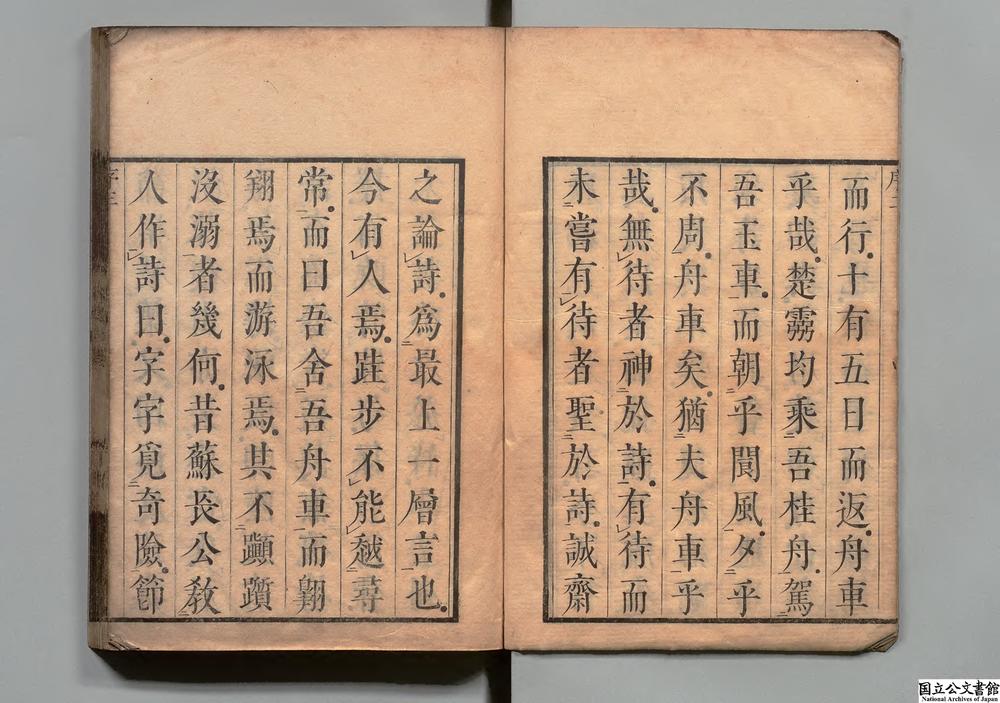 而行十有五日而返舟車
乎哉楚霛均乘吾桂舟駕
吾玉車而朝乎閬風夕乎
不周舟車矣猶夫舟車乎
哉無待者神於詩有待而
未嘗有待者聖於詩誠齋
之論詩為最上一層言也
今有人焉跬步不能越尋
常而曰吾舍吾舟車而翺
翔焉而游泳焉其不顚躓
沒溺者幾何昔蘇長公教
人作詩曰字字覓奇險節
国立公文書館
National Archives of Japan